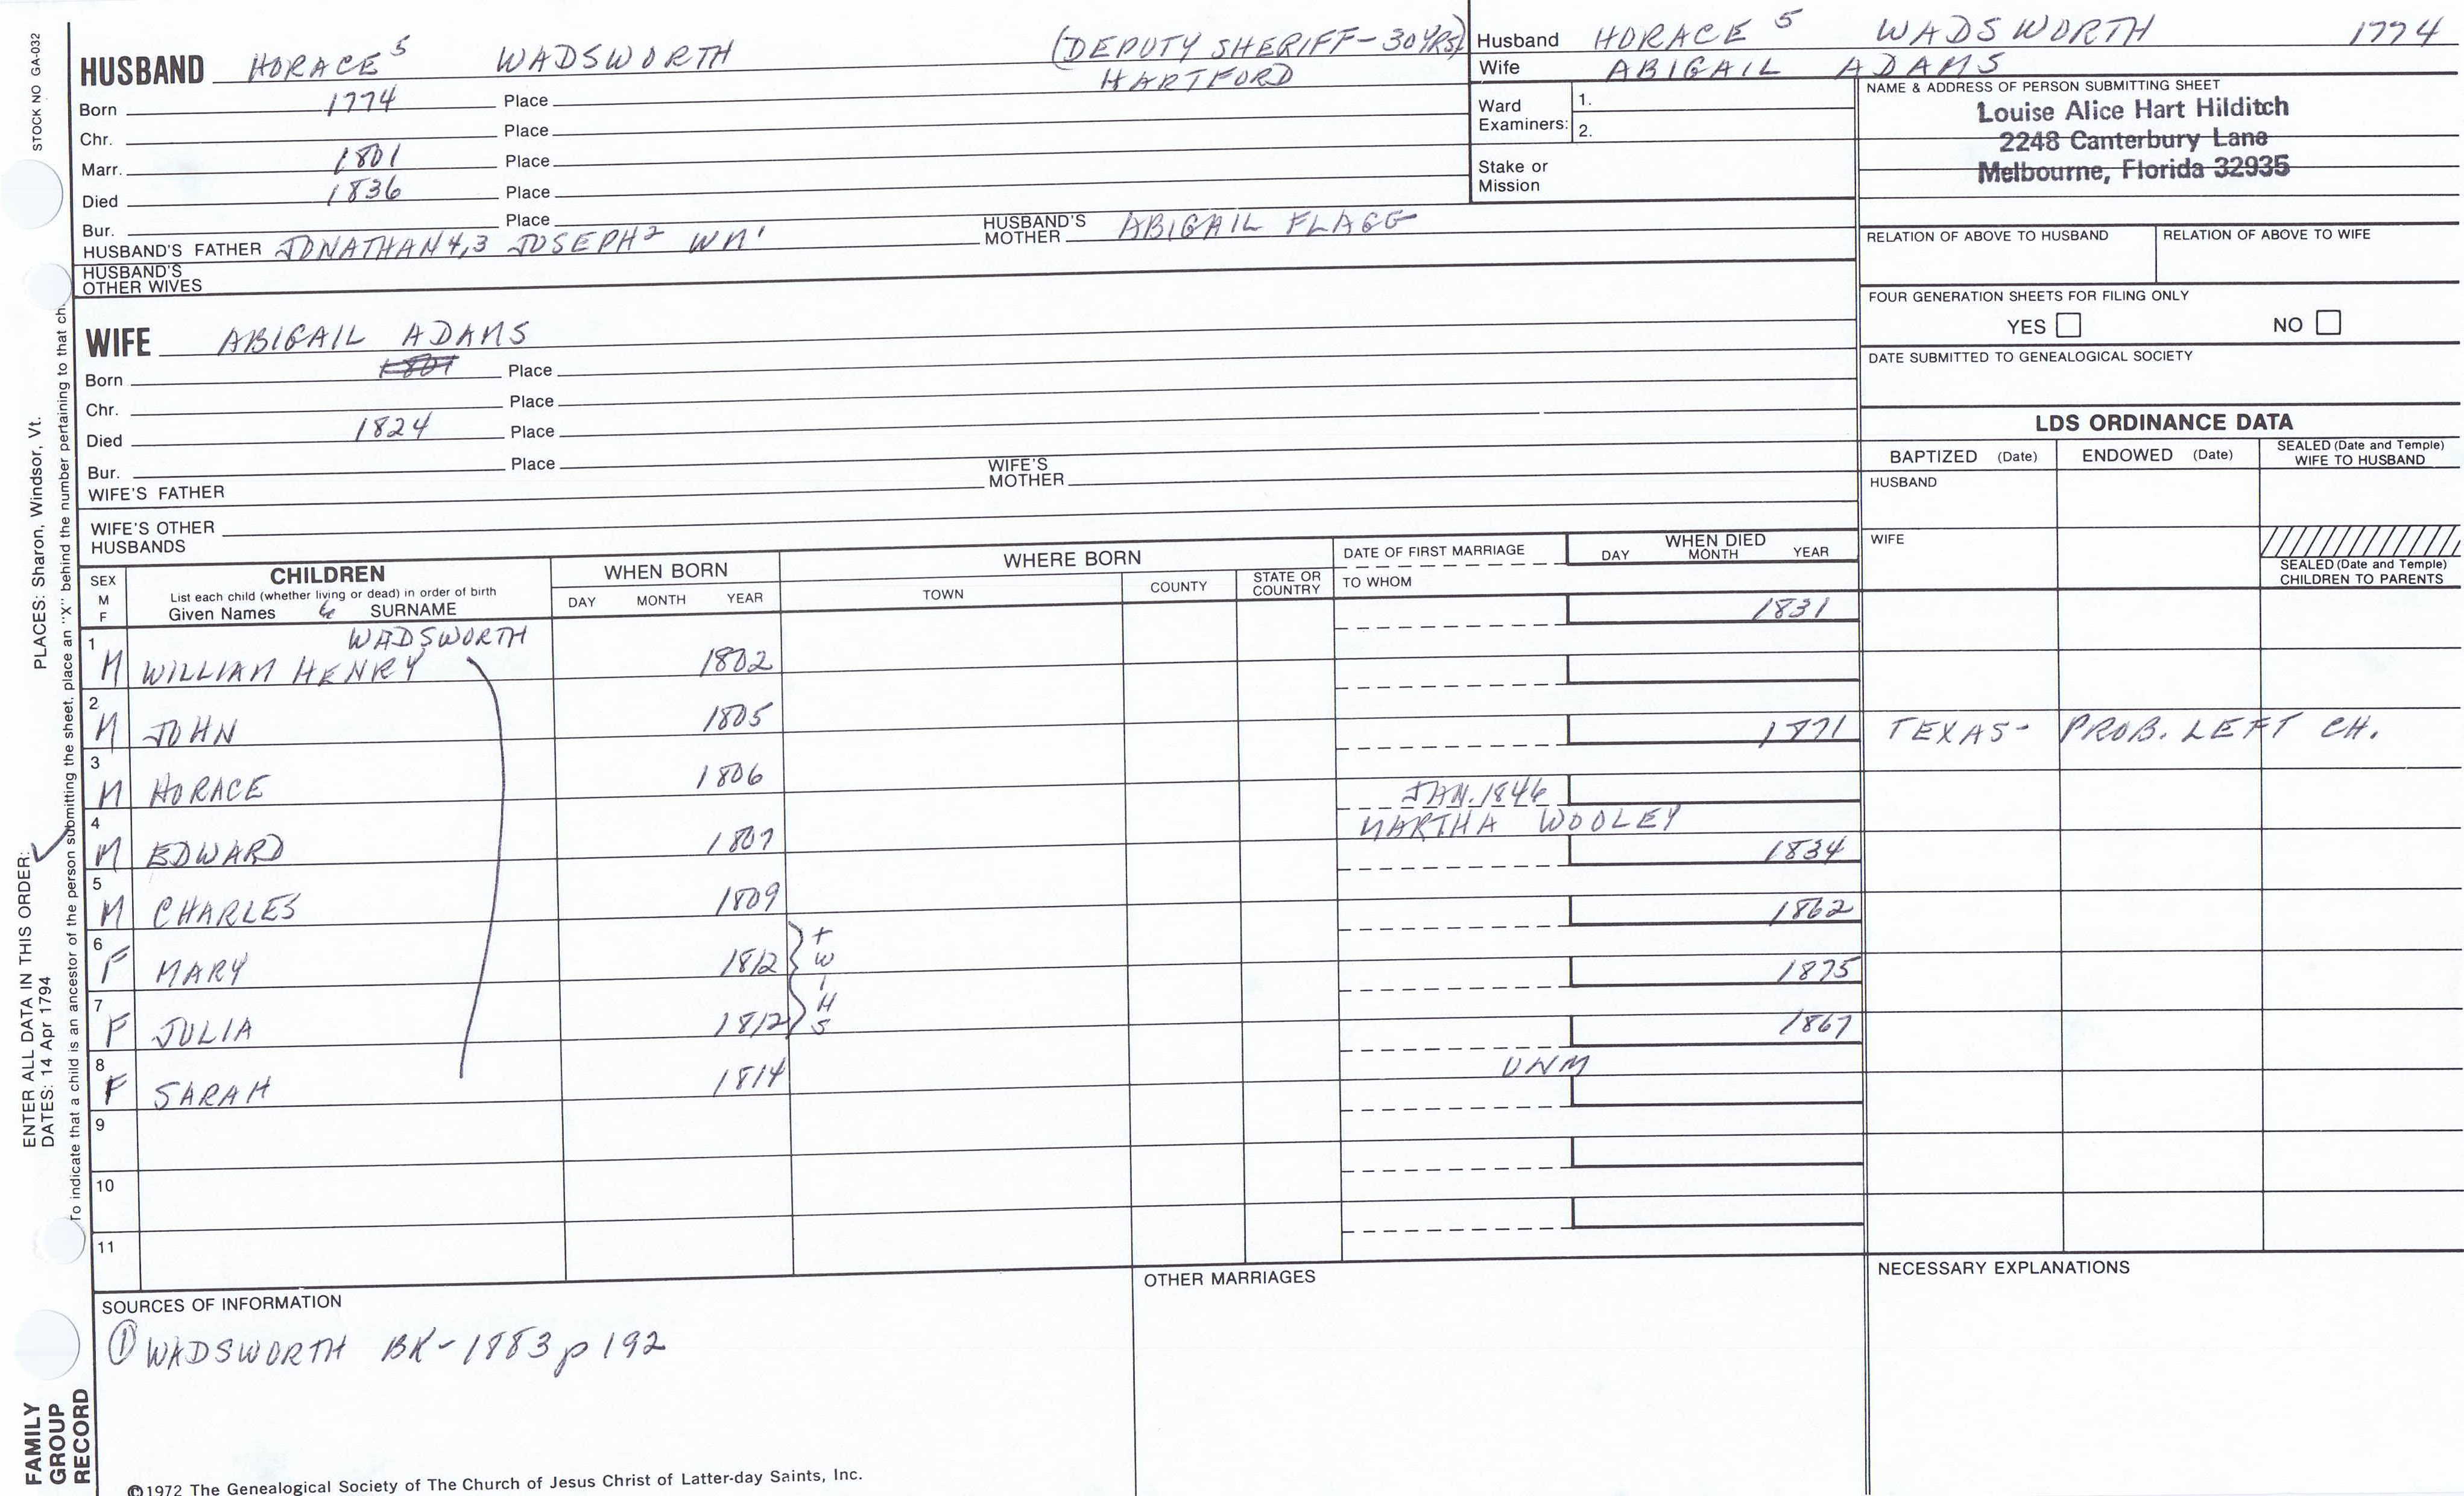 STOCK NO GA-032
HUSBAND HORACE 5 WADSWORTH (DEPUTY SHERIFF - 30 YRS)
HARTFORD
Born 1774 Place
Chr. Place
Marr. 1801 Place
Died 1836 Place
Bur. Place
HUSBAND'S FATHER JONATHAN 4,3 JOSEPH 2 WM 1 HUSBAND'S MOTHER ABIGAIL FLAGG
HUSBAND'S OTHER WIVES
WIFE ABIGAIL ADAMS
Born 1801 Place
Chr. Place
Died 1824 Place
Bur. Place
WIFE'S FATHER WIFE'S MOTHER
WIFE'S OTHER HUSBANDS
Husband HORACE 5 WADSWORTH 1774
Wife ABIGAIL ADAMS
Ward Examiners: 1.
2.
Stake or Mission
NAME & ADDRESS OF PERSON SUBMITTING SHEET
Louise Alice Hart Hilditch
2248 Canterbury Lane
Melbourne, Florida 32935
RELATION OF ABOVE TO HUSBAND RELATION OF ABOVE TO WIFE
FOUR GENERATION SHEETS FOR FILING ONLY
YES NO
DATE SUBMITTED TO GENEALOGICAL SOCIETY
LDS ORDINANCE DATA
BAPTIZED (Date) ENDOWED (Date) SEALED (Date and Temple) WIFE TO HUSBAND
HUSBAND
WIFE
SEALED (Date and Temple) CHILDREN TO PARENTS
SEX M F CHILDREN
List each child (whether living or dead) in order of birth
Given Names & SURNAME
WHEN BORN DAY MONTH YEAR
WHERE BORN TOWN COUNTY STATE OR COUNTRY
DATE OF FIRST MARRIAGE
TO WHOM
WHEN DIED DAY MONTH YEAR
WADSWORTH
1 M WILLIAM HENRY 1802 1831
2 M JOHN 1805
3 M HORACE 1806 1871 TEXAS - PROB. LEFT CH.
4 M EDWARD 1807 JAN. 1846
MARTHA WOOLEY
5 M CHARLES 1809 1834
6 F MARY 1812 1862
TWINS
7 F JULIA 1812 1875
8 F SARAH 1814 1867
UNM
9
10
11
SOURCES OF INFORMATION
① WADSWORTH BK - 1883 p 192
OTHER MARRIAGES
NECESSARY EXPLANATIONS
©1972 The Genealogical Society of The Church of Jesus Christ of Latter-day Saints, Inc.
FAMILY
GROUP
RECORD
ENTER ALL DATA IN THIS ORDER:
DATES: 14 Apr 1794 PLACES: Sharon, Windsor, Vt.
To indicate that a child is an ancestor of the person submitting the sheet, place an "X" behind the number pertaining to that ch